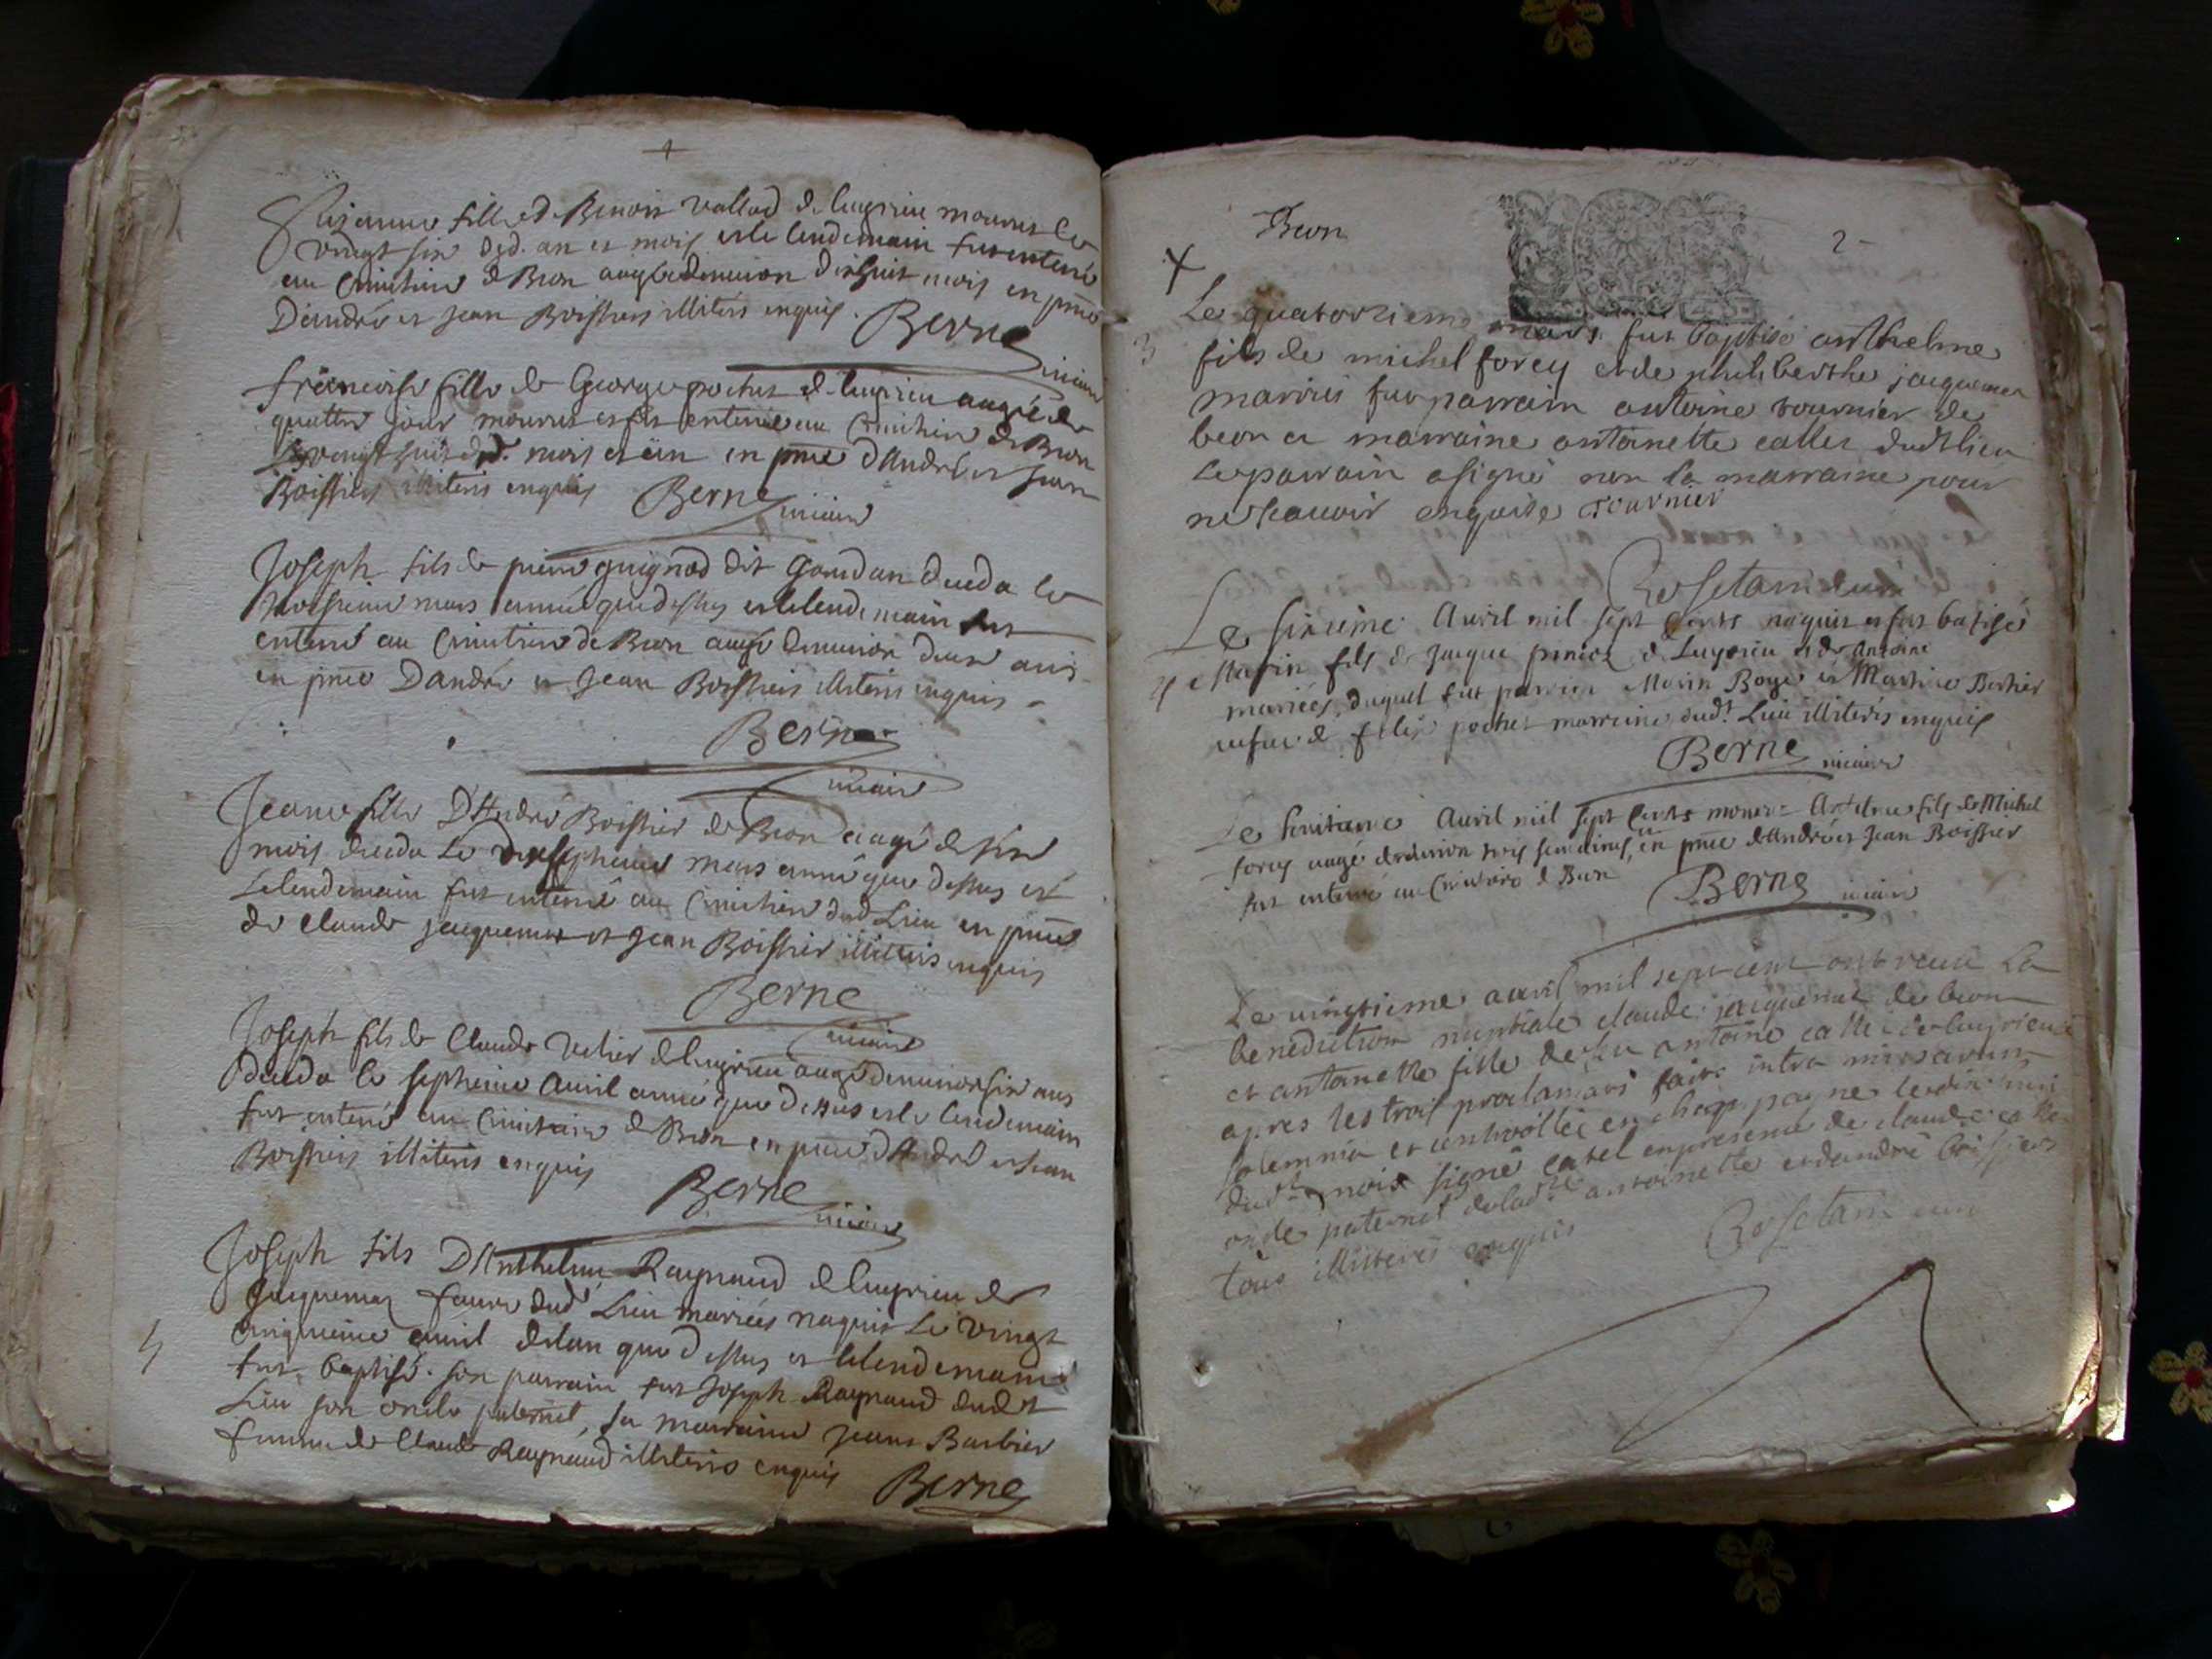 Suzanne fille de Benoit vallod de luyrieu mourut le
vingt six dud. an et mois et le lendemain fut enterré
au Cimitiere de Beon augée denviron dixhuit mois en pnce
D'andré et Jean Boissiers illiteris enquis. Berne
vicaire
francoise fille de George pochet de luyrieu augée de
quattre jour mourut et fut enterrée au Cimitiere de Beon
le vingt huit dud. mois et an en pnce d'André et Jean
Boissiers illiteris enquis Berne vicaire
Joseph fils de pierre guignod dit Gourdan deceda le
troisieme mars année que dessus et le lendemain fut
enterré au Cimitiere de Beon augé denviron deux ans
en pnce D'andré et Jean Boissiers illiteris enquis
Berne
vicaire
Jeanne fille D'André Boissier de Beon augé de six
mois deceda le dixseptieme mars année que dessus et
Lelendemain fut enterré au Cimitiere dud Lieu en pnce
de Claude jacquemet et Jean Boissier illiteris enquis
Berne
vicaire
Joseph fils de Claude Velier de luyrieu augé denviron six ans
deceda le septieme Avril année que dessus et le lendemain
fut enterré au Cimitiere de Beon en pnce d'André et Jean
Boissiers illiteris enquis Berne
vicaire
Joseph fils D'Anthelme Raynaud de luyrieu et
Jacquemaz favre dud Lieu mariés naquit Le vingt
cinquieme avril delan que dessus et lelendemain
fut baptisé. son parrain fut Joseph Raynaud dudt
Lieu son oncle paternel, sa marraine jeane Barbier
femme de Claude Raynaud illiteris enquis Berne
Beon
2
Le quatorzieme mars fut baptisé anthelme
3
fils de michel forey et de philiberthe jacquemet
mariés fut parrain antoine tournier de
beon et marraine antoinette caller dudt lieu
le parrain a signé non la marraine pour
ne scauoir enquise Tournier
Rosetain curé
Le sixieme Avril mil sept Cents naquit et fut batisé
4 Marin fils de jacque de Luyrieu et de antoine
mariés, duquel fut parrain Marin Boyé et Martine Berthier
vefue de felix pochet marraine dudt Lieu illiteris enquis
Berne vicaire
Le huitieme Avril mil sept Cents mourut Antelme fils de Michel
forey augé denviron trois semaines, en pnce dAndré et Jean Boissier
fut enterré au Cimitiere de Beon
Berne vicaire
Le vingtieme avril mil sept cent ont receu La
benediction nuptiale claude jacquemet de beon
et antoinette fille de feu antoine calle de luyrieux
apres les trois proclamãos faite intra missarum
solemnia et controllé en champagne le dix huit
dudt mois signé catel en presence de claude calle
oncle paternel de ladte antoinette et dandré boissiers
tous illiteres enquis Rosetain curé